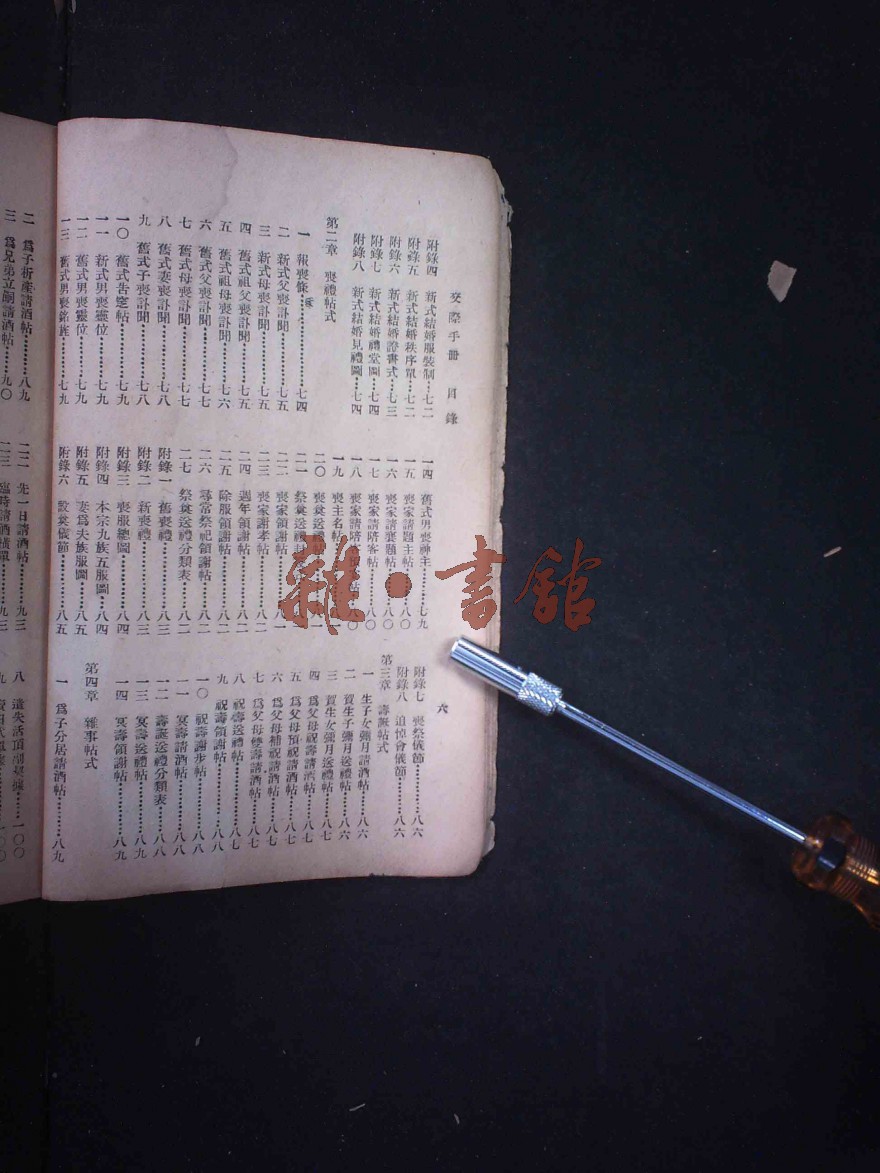 交際手册 目錄
附錄四 新式結婚服裝制……七二
附錄五 新式結婚秩序單……七二
附錄六 新式結婚證書式……七三
附錄七 新式結婚禮堂圖……七四
附錄八 新式結婚見禮圖……七四
第二章 喪禮帖式
一 報喪條……七四
二 新式父喪訃聞……七五
三 新式母喪訃聞……七五
四 舊式祖父喪訃聞……七五
五 舊式祖母喪訃聞……七六
六 舊式父喪訃聞……七七
七 舊式母喪訃聞……七七
八 舊式妻喪訃聞……七七
九 舊式子喪訃聞……七八
一〇 舊式告窆帖……七八
一一 新式男喪靈位……七九
一二 舊式男喪靈位……七九
一三 舊式男喪銘旌……七九
一四 舊式男喪神主……七九
一五 喪家請題主帖……八〇
一六 喪家請襄題帖……八〇
一七 喪家請陪客帖……八〇
一八 喪家請陪客預帖……八〇
一九 喪主名帖
二〇 祭奠送禮帖
二一 祭奠送禮封
二二 喪家領謝帖
二三 喪家謝孝帖……八二
二四 週年領謝帖……八二
二五 除服領謝帖……八二
二六 尋常祭祀領謝帖……八二
二七 祭奠送禮分類表……八二
附錄一 舊喪禮……八三
附錄二 新喪禮……八三
附錄三 喪服總圖……八四
附錄四 本宗九族五服圖……八四
附錄五 妻爲夫族服圖……八五
附錄六 設奠儀節……八五
六
附錄七 喪祭儀節……八六
附錄八 追悼會儀節……八六
第三章 壽誕帖式
一 生子女彌月請酒帖……八六
二 賀生子彌月送禮帖……八六
三 賀生女彌月送禮帖……八七
四 爲父母祝壽請酒帖……八七
五 爲父母預祝請酒帖……八七
六 爲父母補祝請酒帖……八七
七 爲父母雙壽請酒帖……八七
八 祝壽送禮帖……八七
九 祝壽領謝帖……八八
一〇 祝壽謝步帖……八八
一一 冥壽請酒帖……八八
一二 壽誕送禮分類表……八八
一三 冥壽送禮帖……八九
一四 冥壽領謝帖……八九
第四章 雜事帖式
一 爲子分居請酒帖……八九
二 爲子析產請酒帖……八九
三 爲兄弟立嗣請酒帖……九〇
二二 先一日請酒帖……九三
二三 臨時請酒橫單……九三
八 遺失活頂副契據……一〇〇
雜·書館